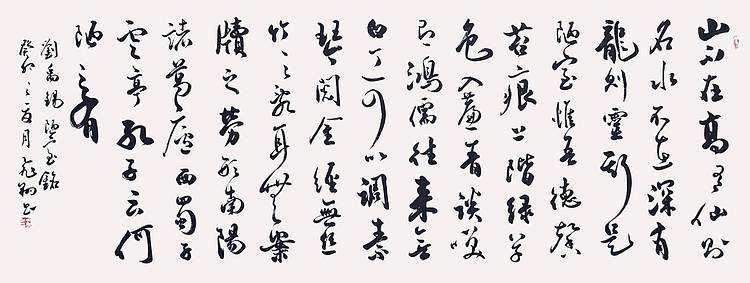 山不在高有仙則
名水不在深有
龍則靈斯是
陋室惟吾德馨
苔痕上階緑草
色入簾青談笑
有鴻儒往來無
白丁可以調素
琴閱金經無絲
竹之亂耳無案
牘之勞形南陽
諸葛廬西蜀子
雲亭孔子云何
陋之有
劉禹錫陋室銘
癸卯之夏月書